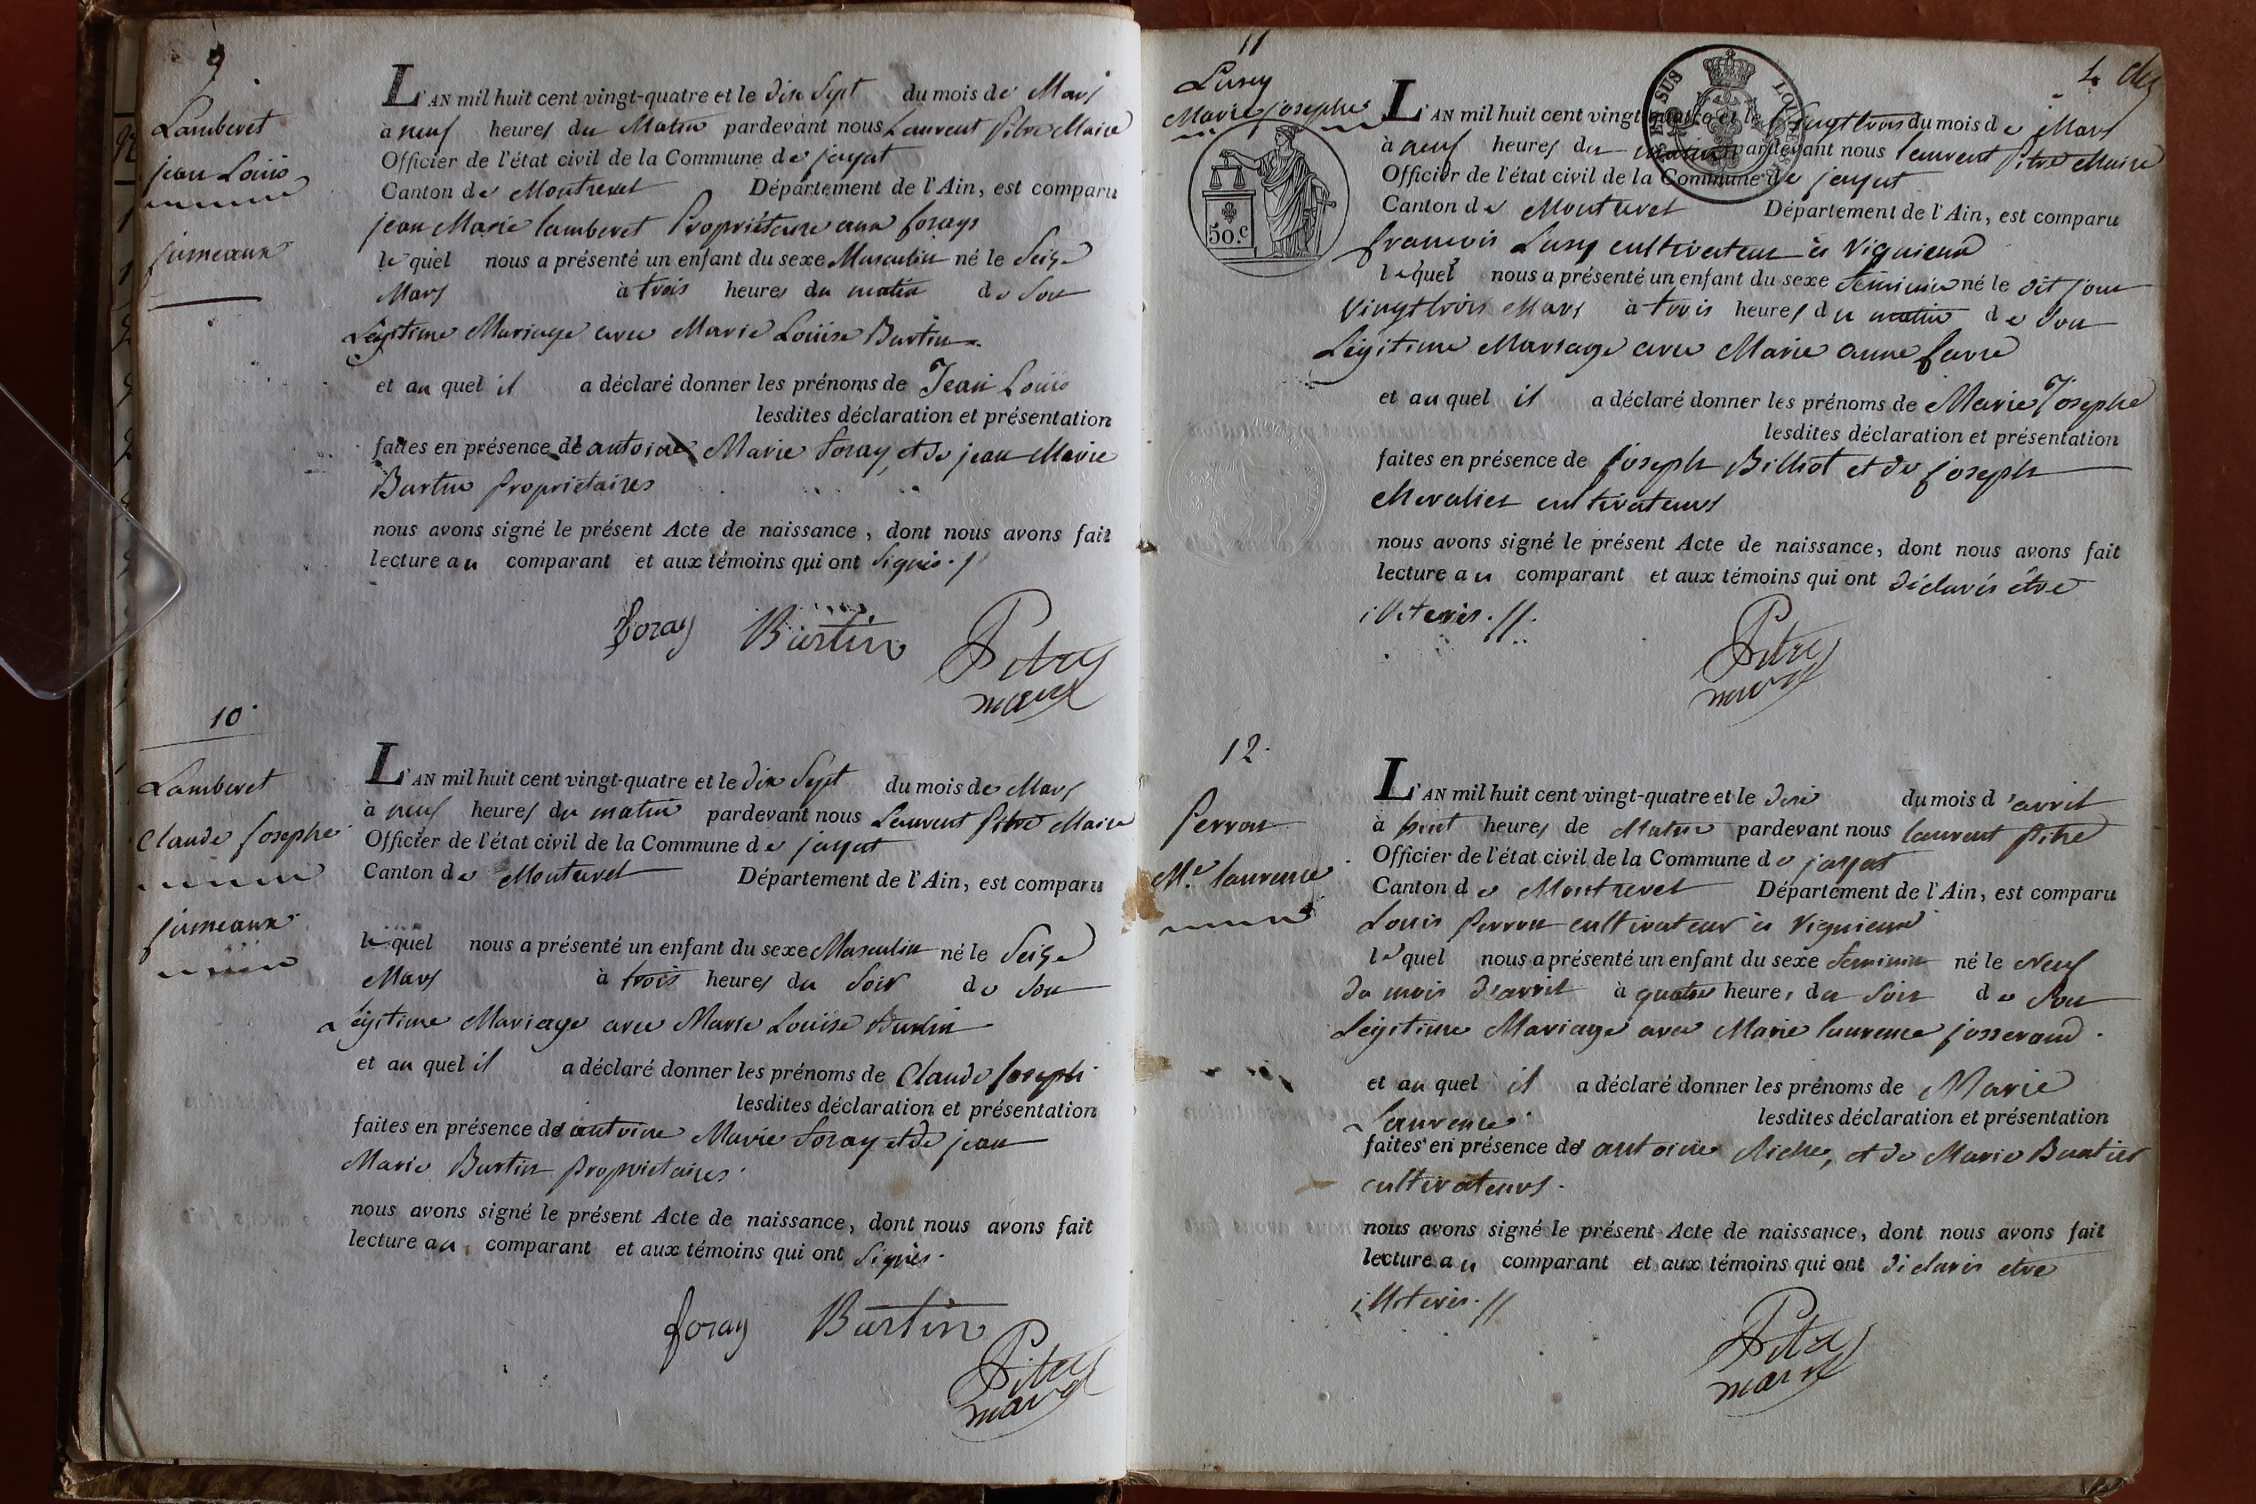 9
Lamberet
jean Louis
jumeaux
L'AN mil huit cent vingt-quatre et le dix Sept du mois de Mars
à neuf heures du Matin pardevant nous Laurent Pitre Maire
Officier de l'état civil de la Commune de jayat
Canton de Montrevel Département de l'Ain, est comparu
jean Marie lamberet Propriétaire aux forays
lequel nous a présenté un enfant du sexe Masculin né le Seize
Mars à trois heures du matin de Son
Légitime Mariage avec Marie Louise Burtin
et au quel il a déclaré donner les prénoms de Jean Louis
lesdites déclaration et présentation
faites en présence de antoine Marie foray et de jean Marie
Burtin propriétaires
nous avons signé le présent Acte de naissance, dont nous avons fait
lecture au comparant et aux témoins qui ont Signés.
foray Burtin Pitre
maire
10
Lamberet
Claude Josephe
jumeaux
L'AN mil huit cent vingt-quatre et le dix Sept du mois de Mars
à neuf heures du matin pardevant nous Laurent Pitre Maire
Officier de l'état civil de la Commune de jayat
Canton de Montrevel Département de l'Ain, est comparu
lequel nous a présenté un enfant du sexe Masculin né le Seize
Mars à trois heures du Soir de Son
Légitime Mariage avec Marie Louise Burtin
et au quel il a déclaré donner les prénoms de Claude Joseph
lesdites déclaration et présentation
faites en présence de antoine Marie foray et de jean
Marie Burtin propriétaires
nous avons signé le présent Acte de naissance, dont nous avons fait
lecture au comparant et aux témoins qui ont Signés.
foray Burtin
Pitre
maire
11
Lusy
Marie josephe
50.c
L'AN mil huit cent vingt-quatre et le Vingt trois du mois de Mars
à neuf heures du matin pardevant nous laurent Pitre Maire
Officier de l'état civil de la Commune de jayat
Canton de Montrevel Département de l'Ain, est comparu
francois Lusy cultivateur à Vignieux
lequel nous a présenté un enfant du sexe féminin né le dit jour
Vingt trois Mars à trois heures du matin de Son
Légitime Mariage avec Marie anne favre
et au quel il a déclaré donner les prénoms de Marie Josephe
lesdites déclaration et présentation
faites en présence de joseph Billiot et de joseph
Chevalier cultivateurs
nous avons signé le présent Acte de naissance, dont nous avons fait
lecture au comparant et aux témoins qui ont déclarés être
illeterés.
Pitre
maire
12
Perron
M.e laurence
L'AN mil huit cent vingt-quatre et le dix du mois d'avril
à huit heures de Matin pardevant nous laurent Pitre
Officier de l'état civil de la Commune de jayat
Canton de Montrevel Département de l'Ain, est comparu
Louis Perron cultivateur à Vignieux
lequel nous a présenté un enfant du sexe féminin né le Neuf
du mois d'avril à quatre heures du Soir de Son
Légitime Mariage avec Marie laurence josserand.
et au quel il a déclaré donner les prénoms de Marie
Laurence lesdites déclaration et présentation
faites en présence de antoine et de Marie
cultivateurs.
nous avons signé le présent Acte de naissance, dont nous avons fait
lecture au comparant et aux témoins qui ont déclarés etre
illiterés.
Pitre
maire